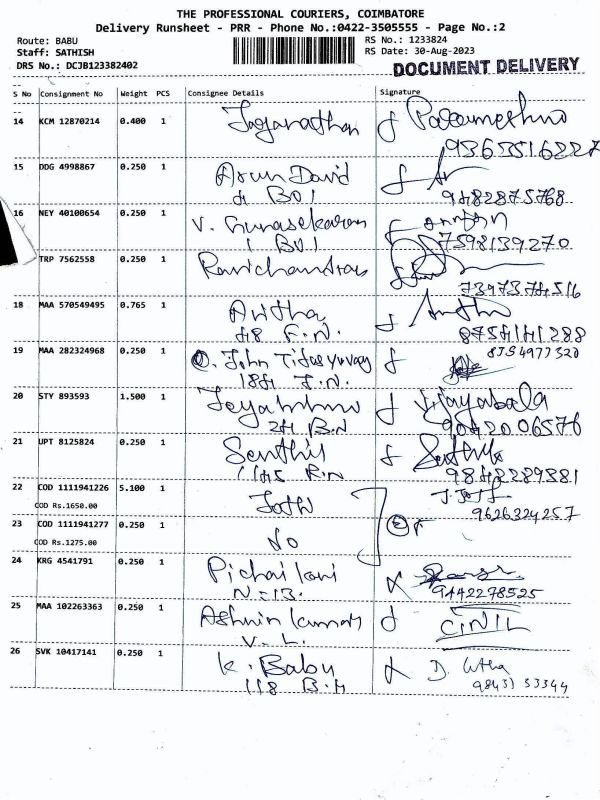 THE PROFESSIONAL COURIERS, COIMBATORE
Delivery Runsheet - PRR - Phone No.:0422-3505555 - Page No.:2
Route: BABU RS No.: 1233824
Staff: SATHISH RS Date: 30-Aug-2023
DRS No.: DCJB123382402 DOCUMENT DELIVERY
S No Consignment No Weight PCS Consignee Details Signature
14 KCM 12870214 0.400 1 Jaganathan
9363516227
15 DDG 4998867 0.250 1 Arun David
9482875768
16 NEY 40100654 0.250 1 V. Gunasekaran
7598139270
TRP 7562558 0.250 1 Ravichandran
7397374516
18 MAA 570549495 0.765 1 Anitha
48 F.N. 8754141288
19 MAA 282324968 0.250 1 John
8754977320
20 STY 893593 1.500 1 Vijayabala
24 B.N 9042006576
21 UPT 8125824 0.250 1 Senthil
9842289381
22 COD 1111941226 5.100 1
COD Rs.1650.00 9626324257
23 COD 1111941277 0.250 1
COD Rs.1275.00
24 KRG 4541791 0.250 1
9442278525
25 MAA 102263363 0.250 1 Ashwin kumar
V.L.
26 SVK 10417141 0.250 1 K. Babu
118 B.H 98431 53344